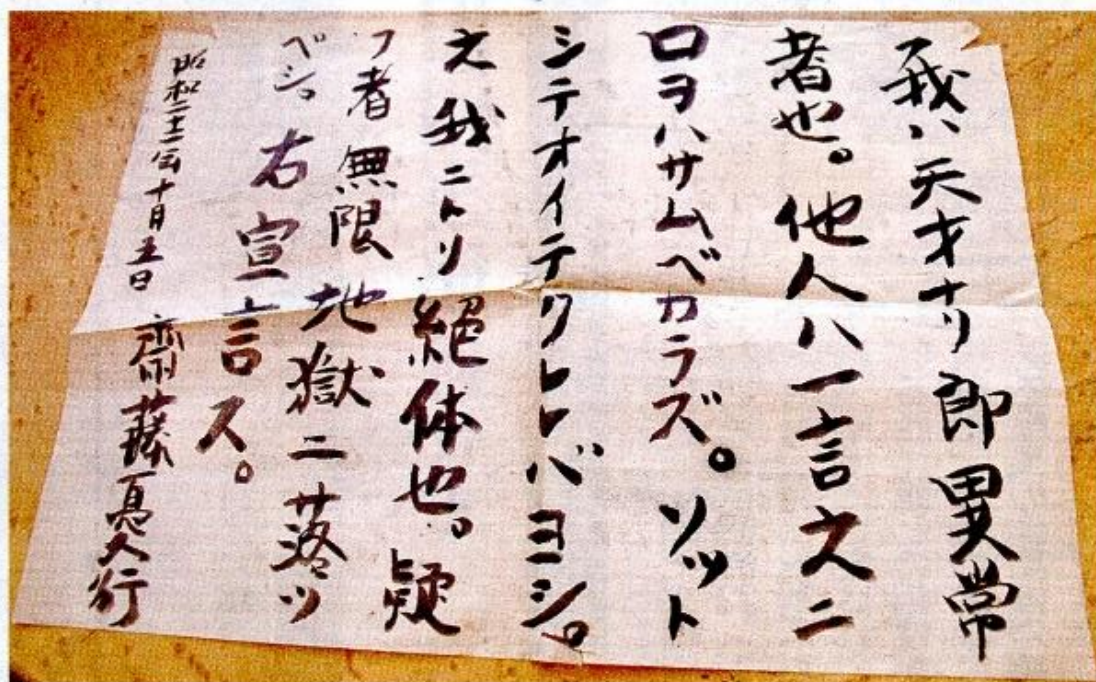 我ハ天才ナリ即異常
者也。他人ハ一言之ニ
口ヲハサムベカラズ。ソット
シテオイテクレレバヨシ。
之我ニトリ絶体也。疑
フ者無限地獄ニ落ツ
ベシ。右宣言ス。
昭和二十二年十月五日 齋藤憂行